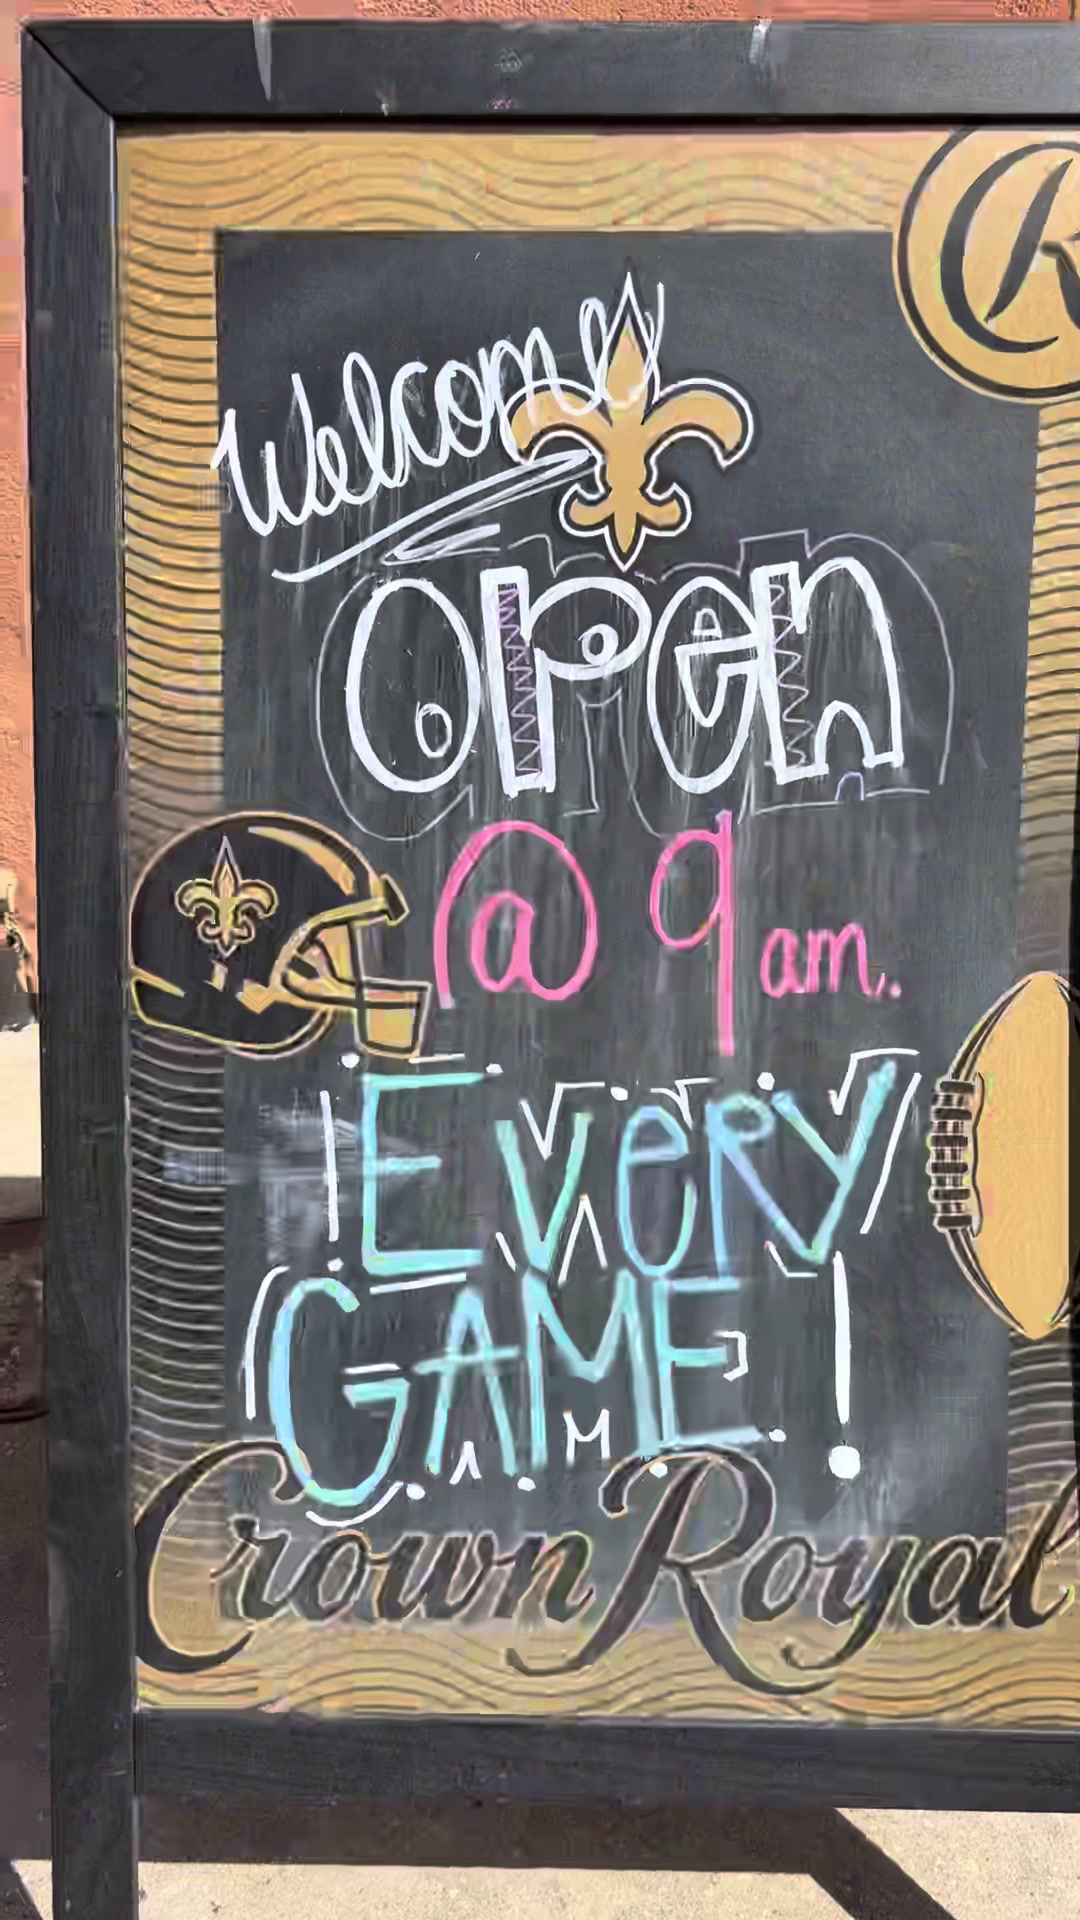 Welcome
Open
@ 9 am.
EVeRY
GAME!
Crown Royal